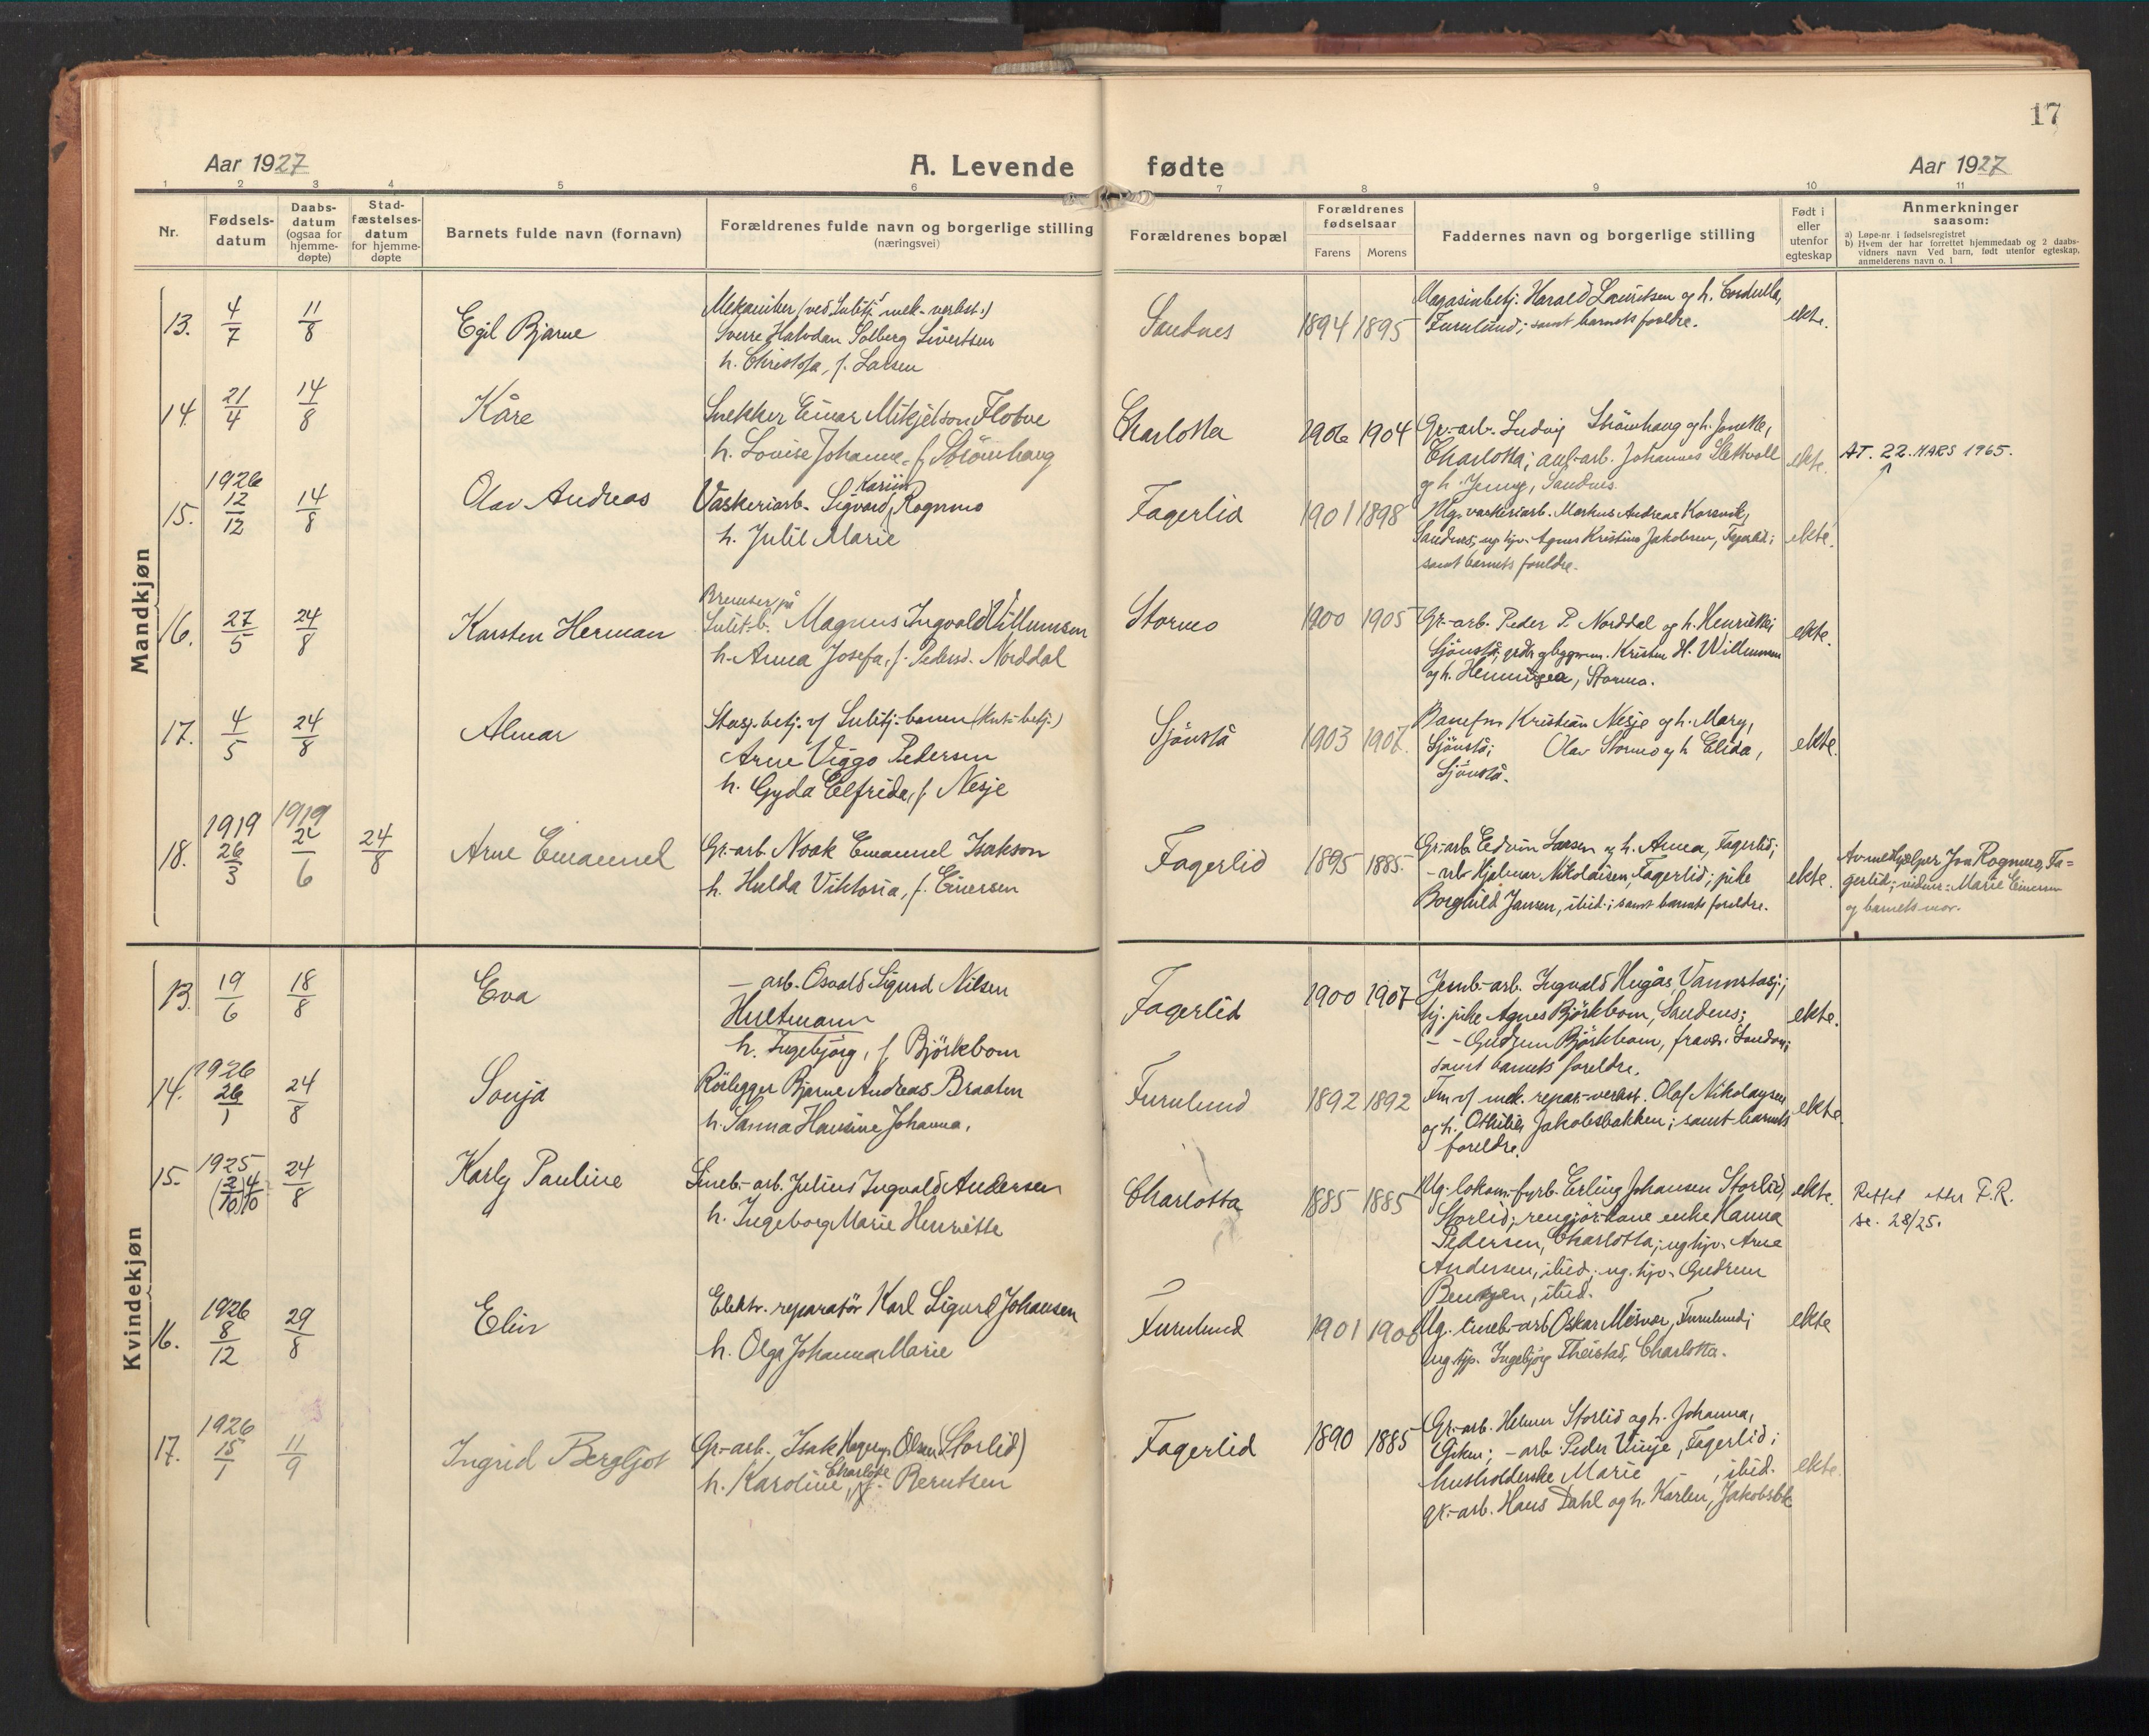 17
Aar 1927
A. Levende fødte
Aar 1927
1 2 3 4 5 6 7 8 9 10 11
Nr.
Fødsels-
datum
Daabs-
datum
(ogsaa for
hjemme-
døpte)
Stad-
fæstelses-
datum
for hjemme-
døpte
Barnets fulde navn (fornavn)
Forældrenes fulde navn og borgerlige stilling
(næringsvei)
Forældrenes bopæl
Forældrenes
fødselsaar
Farens Morens
Faddernes navn og borgerlige stilling
Født i
eller
utenfor
egteskap
Anmerkninger
saasom:
a) Løpe-nr. i fødselsregistret
b) Hvem der har forrettet hjemmedaab og 2 daabs-
vidners navn Ved barn, født utenfor egteskap,
anmelderens navn o. l
Mandkjøn
13.
4/7
11/8
Egil Bjarne
Mekaniker (ved Sulitj. mek. verkst.)
Sverre Halvdan Solberg Sivertsen
h. Christofa, f. Larsen
Sandnes
1894 1895
Magasinbetj. Harald Lauritsen og h. Cordella,
Furulund; samt barnets foreldre.
ekte.
14.
21/4
14/8
Kåre
Snekker Einar Mikjelson Flotve
h. Lovise Johanne, f. Strömhaug
Charlotta
1906 1904
Gr.-arb. Ludvig Strömhaug og h. Jonette,
Charlotta; anl.-arb. Johannes Slettvoll
og h. Jenny, Sandnes.
ekte.
AT. 22. MARS 1965.
15.
1926
12/12
14/8
Olav Andreas
Vaskeriarb. Sigvard Karius Rognmo
h. Julie Marie
Fagerlid
1901 1898
Ug. vaskeriarb. Markus Andreas Korsvik,
Sandnes; ug. hjv. Agnes Kristine Jakobsen, Fagerlid;
samt barnets foreldre.
ekte.
16.
27/5
24/8
Karsten Herman
Bremser på
Sulit-b. Magnus Ingvald Villumsen
h. Anna Josefa, f. Pedersd. Norddal
Stormo
1900 1905
Gr.-arb. Peder P. Norddal og h. Henrikke,
Sjönstå; Kristen H. Willumsen
og h. Henningea, Stormo.
ekte.
17.
4/5
24/8
Almar
Stasj.-betj. v/ Sulitj.-banen
Arne Viggo Pedersen
h. Gyda Elfrida, f. Nesje
Sjönstå
1903 1907.
Banefm Kristian Nesje og h. Mary,
Sjönstå; Olav Stormo og h Elida,
Sjönstå.
ekte.
18.
1919
26/3
1919
2/6
24/8
Arne Emanuel
Gr.-arb. Noak Emanuel Isakson
h. Hulda Viktoria, f. Einersen
Fagerlid
1895 1885.
Gr.-arb Edvin Larsen og h. Anna, Fagerlid;
- arb Hjalmar Nikolaisen, Fagerlid; pike
Borghild Jansen, ibid.; samt barnets foreldre.
ekte.
Jon Rognmo, Fa=
gerlid; vidner: Marie Einersen
og barnets mor.
Kvindekjøn
13.
19/6
18/8
Eva
- arb. Osvald Sigurd Nilsen
Hultmann
h. Ingebjörg, f. Björkbom
Fagerlid
1900 1907
Jernb.-arb. Ingvald Hugås, Vannstasj.;
hj. pike Agnes Björkbom, Sandnes;
- - Gudrun Björkbom,
samt barnets foreldre.
ekte.
14.
1926
26/1
24/8
Sonja
Rörlegger Bjarne Andreas Braaten
h. Sanna Hansine Johanna.
Furulund
1892 1892
Fm. v/ mek. repar.-verkst. Olaf Nikolaysen
og h. Othilie, Jakobsbakken; samt barnets
foreldre.
ekte.
15.
1925
(2/10) 4/10
24/8
Karly Pauline
Lineb.-arb. Julius Ingvald Andersen
h. Ingeborg Marie Henriette
Charlotta
1885 1885
Ug. lokom.-fyrb. Erling Johansen Storlid,
Storlid; rengjör.kone enke Hanna
Pedersen, Charlotta; ug hjv. Arne
Andersen, ibid; ug. hjv. Gudrun
Bentzen, ibid.
ekte.
Rettet etter F.R.
se. 28/25.
16.
1926
8/12
29/8
Elin
Elektr. reparatör Karl Sigurd Johansen
h. Olga Johanna Marie
Furulund
1901 1900
Ug. lineb.-arb Oskar Misvær, Furulund;
ug. tjp. Ingebjörg Theistad, Charlotta.
ekte
17.
1926
15/1
11/9
Ingrid Bergljot
Gr.-arb. Isak Olsen (Storlid)
h. Karoline Charlotte, f. Berntsen
Fagerlid
1890 1885
Gr.-arb. Helmer Storlid og h. Johanna,
Giken; - arb. Peder Vinje, Fagerlid;
husholderske Marie - , ibid.
gr.-arb. Hans Dahl og h. Karlen, Jakobsbk
ekte.